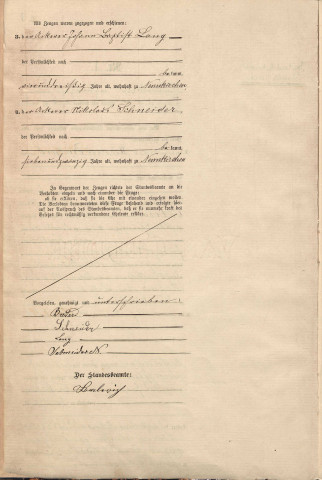 Als Zeugen waren zugezogen und erschienen:
3. der Ackerer Johann Baptist Lang
der Persönlichkeit nach
be kannt,
vierunddreißig Jahre alt, wohnhaft zu Neunkirchen
4. der Ackerer Nikolaus Schneider
der Persönlichkeit nach
be kannt,
siebenundzwanzig Jahre alt, wohnhaft zu Neunkirchen
In Gegenwart der Zeugen richtete der Standesbeamte an die
Verlobten einzeln und nach einander die Frage:
ob sie erklären, daß sie die Ehe mit einander eingehen wollen.
Die Verlobten beantworteten diese Frage bejahend und erfolgte hier-
auf der Ausspruch des Standesbeamten, daß er sie nunmehr kraft des
Gesetzes für rechtmäßig verbundene Eheleute erkläre.
Vorgelesen, genehmigt und unterschrieben:
Schneider
Lang
Schneider N
Der Standesbeamte: